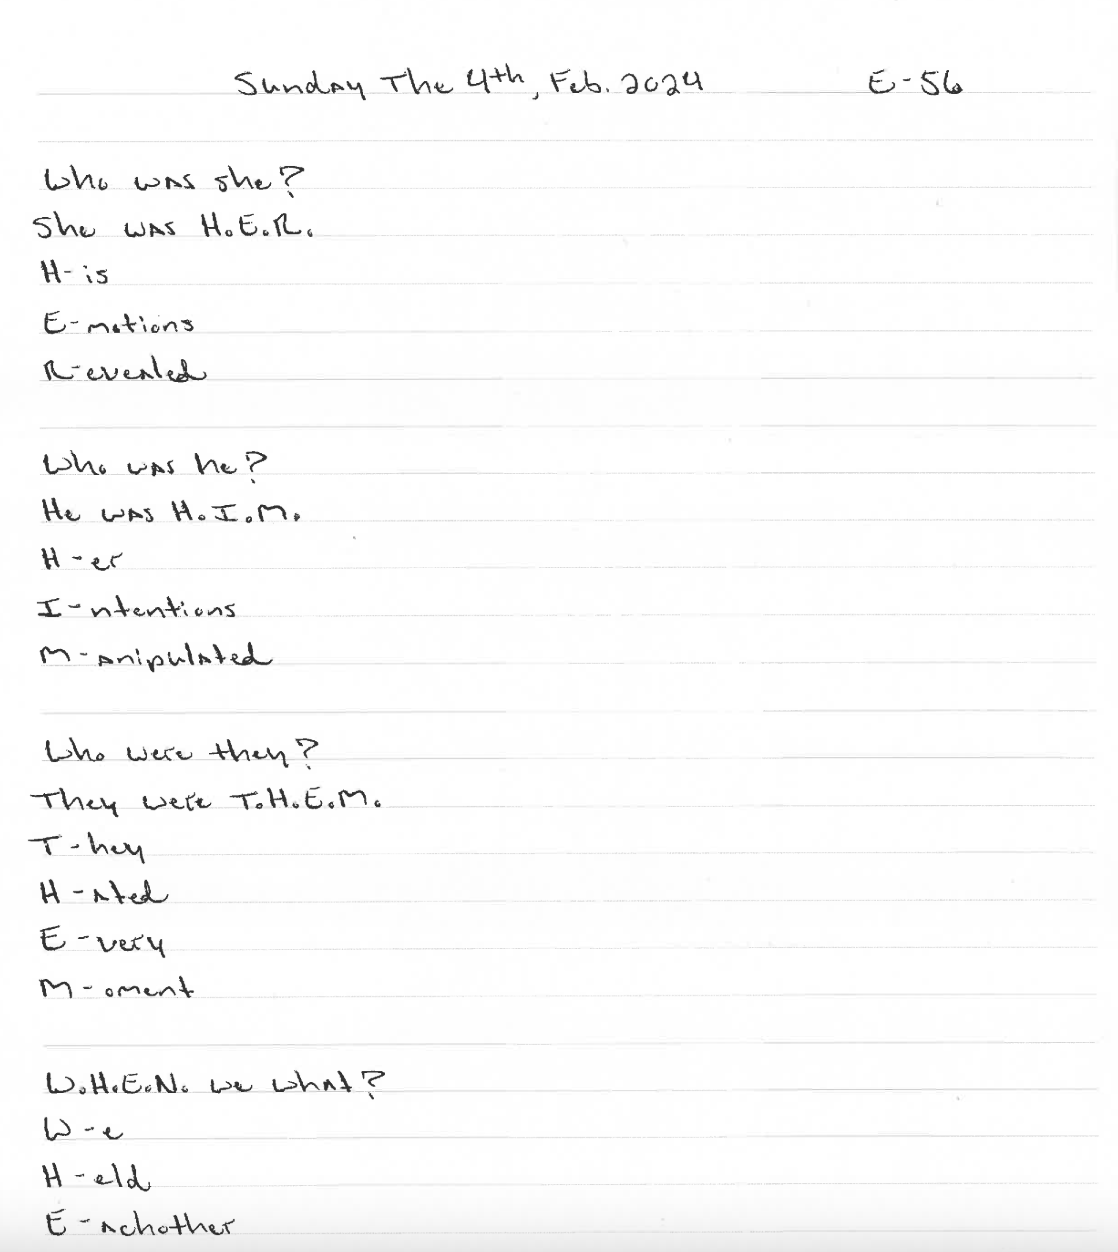 Sunday The 4th, Feb. 2024 E-56
Who was she?
She was H.E.R.
H-is
E-motions
R-evealed
Who was he?
He was H.I.M.
H-er
I-ntentions
M-anipulated
Who were they?
They were T.H.E.M.
T-hey
H-ated
E-very
M-oment
W.H.E.N. we what?
W-e
H-eld
E-achother